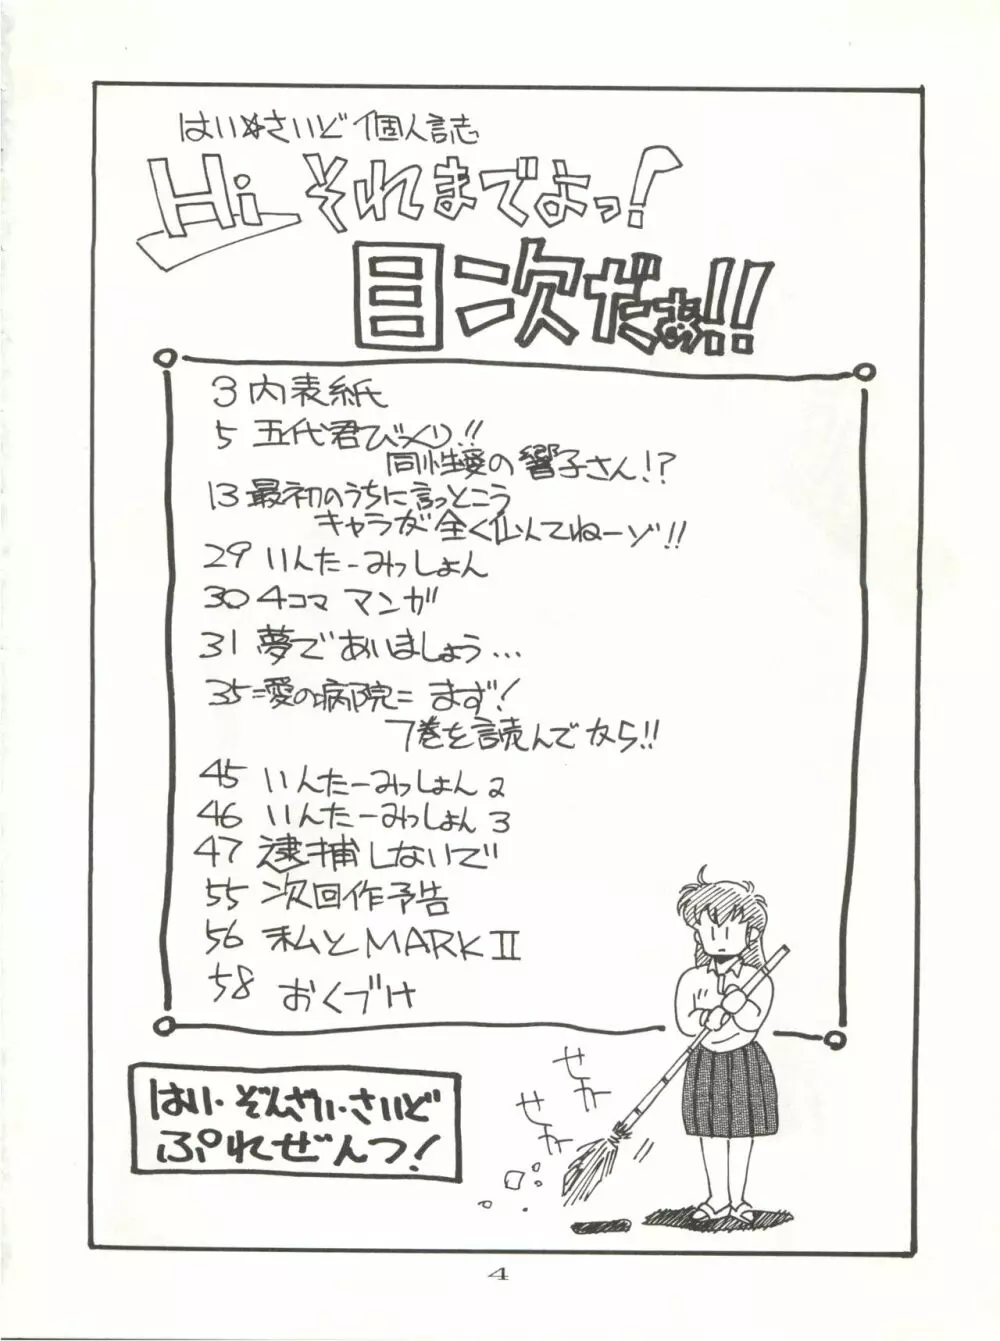 はい☆さいど 個人誌
Hi それまでよっ!
目次だぁ!!
3 内表紙
5 五代君びっくり!!
同性愛の響子さん!?
13 最初のうちに言っとこう
キャラが全く似てねーゾ!!
29 いんたーみっしょん
30 4コママンガ
31 夢であいましょう…
35 =愛の病院= まず!
7巻を読んでから!!
45 いんたーみっしょん 2
46 いんたーみっしょん 3
47 逮捕しないで
55 次回作予告
56 私とMARKⅡ
58 おくづけ
せか
せか
はい・ぞんざい・さいど
ぷれぜんつ!
4